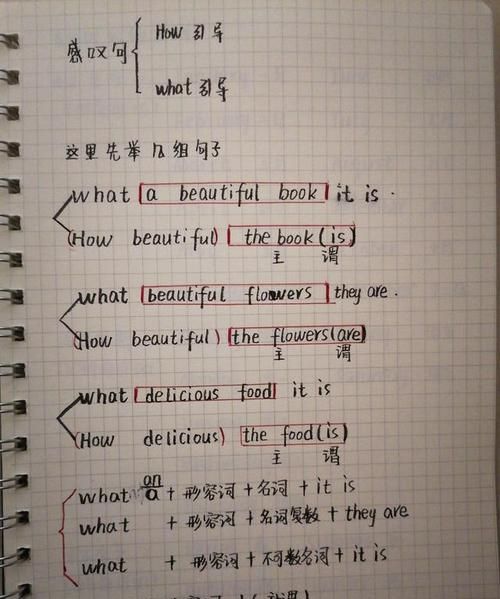 感叹句
How 引导
what 引导
这里先举几组句子
what a beautiful book it is.
(How beautiful) the book(is)
主 谓
what beautiful flowers they are.
(How beautiful) the flowers(are)
主 谓
what delicious food it is
(How delicious) the food(is)
主 谓
what an/a + 形容词 + 名词 + it is
what + 形容词 + 名词复数 + they are
what + 形容词 + 不可数名词 + it is